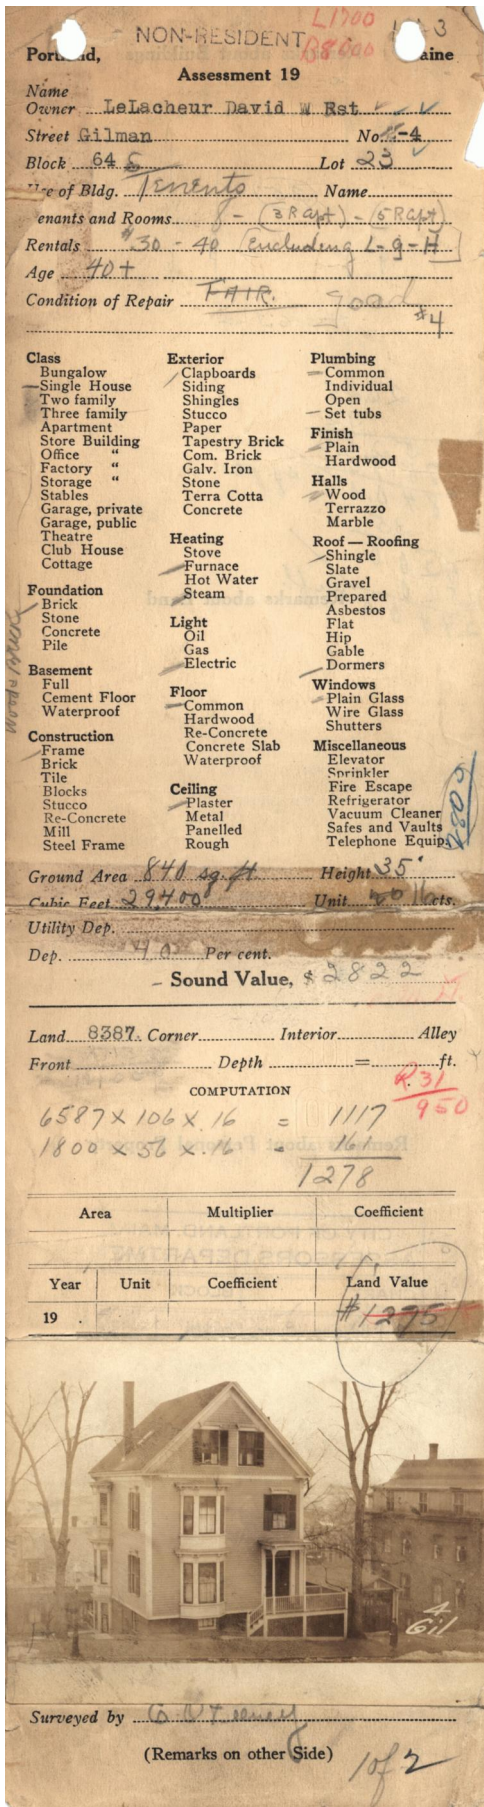 NON-RESIDENT
L1700
B8000
Portland, Maine
Assessment 19
Name
Owner LeLacheur David W Est
Street Gilman No. -4
Block 64 Lot 23
Use of Bldg. Tenents Name
enants and Rooms 8 - (3 R apt) - (5 R apt)
Rentals $30 - 40 (Excluding L-g-H)
Age 40+
Condition of Repair FAIR. good
$4
Class
Bungalow
Single House
Two family
Three family
Apartment
Store Building
Office "
Factory "
Storage "
Stables
Garage, private
Garage, public
Theatre
Club House
Cottage
Foundation
Brick
Stone
Concrete
Pile
Wood & Brick
Basement
Full
Cement Floor
Waterproof
Construction
Frame
Brick
Tile
Blocks
Stucco
Re-Concrete
Mill
Steel Frame
Exterior
Clapboards
Siding
Shingles
Stucco
Paper
Tapestry Brick
Com. Brick
Galv. Iron
Stone
Terra Cotta
Concrete
Heating
Stove
Furnace
Hot Water
Steam
Light
Oil
Gas
Electric
Floor
Common
Hardwood
Re-Concrete
Concrete Slab
Waterproof
Ceiling
Plaster
Metal
Panelled
Rough
Plumbing
Common
Individual
Open
Set tubs
Finish
Plain
Hardwood
Halls
Wood
Terrazzo
Marble
Roof — Roofing
Shingle
Slate
Gravel
Prepared
Asbestos
Flat
Hip
Gable
Dormers
Windows
Plain Glass
Wire Glass
Shutters
Miscellaneous
Elevator
Sprinkler
Fire Escape
Refrigerator
Vacuum Cleaner
Safes and Vaults
Telephone Equip.
Ground Area 840 sq. ft. Height 35'
Cubic Feet 29,400 Unit 16 cts.
Utility Dep.
Dep. 40 Per cent.
Sound Value, $2822
Land 8387. Corner Interior Alley
Front Depth = ft.
R31
950
COMPUTATION
6587 x 106 x .16 = 1117
1800 x 56 x .16 = 161
1278
Area Multiplier Coefficient
Year Unit Coefficient Land Value
19 $1275
4
Gil
Surveyed by
(Remarks on other Side)
1 of 2